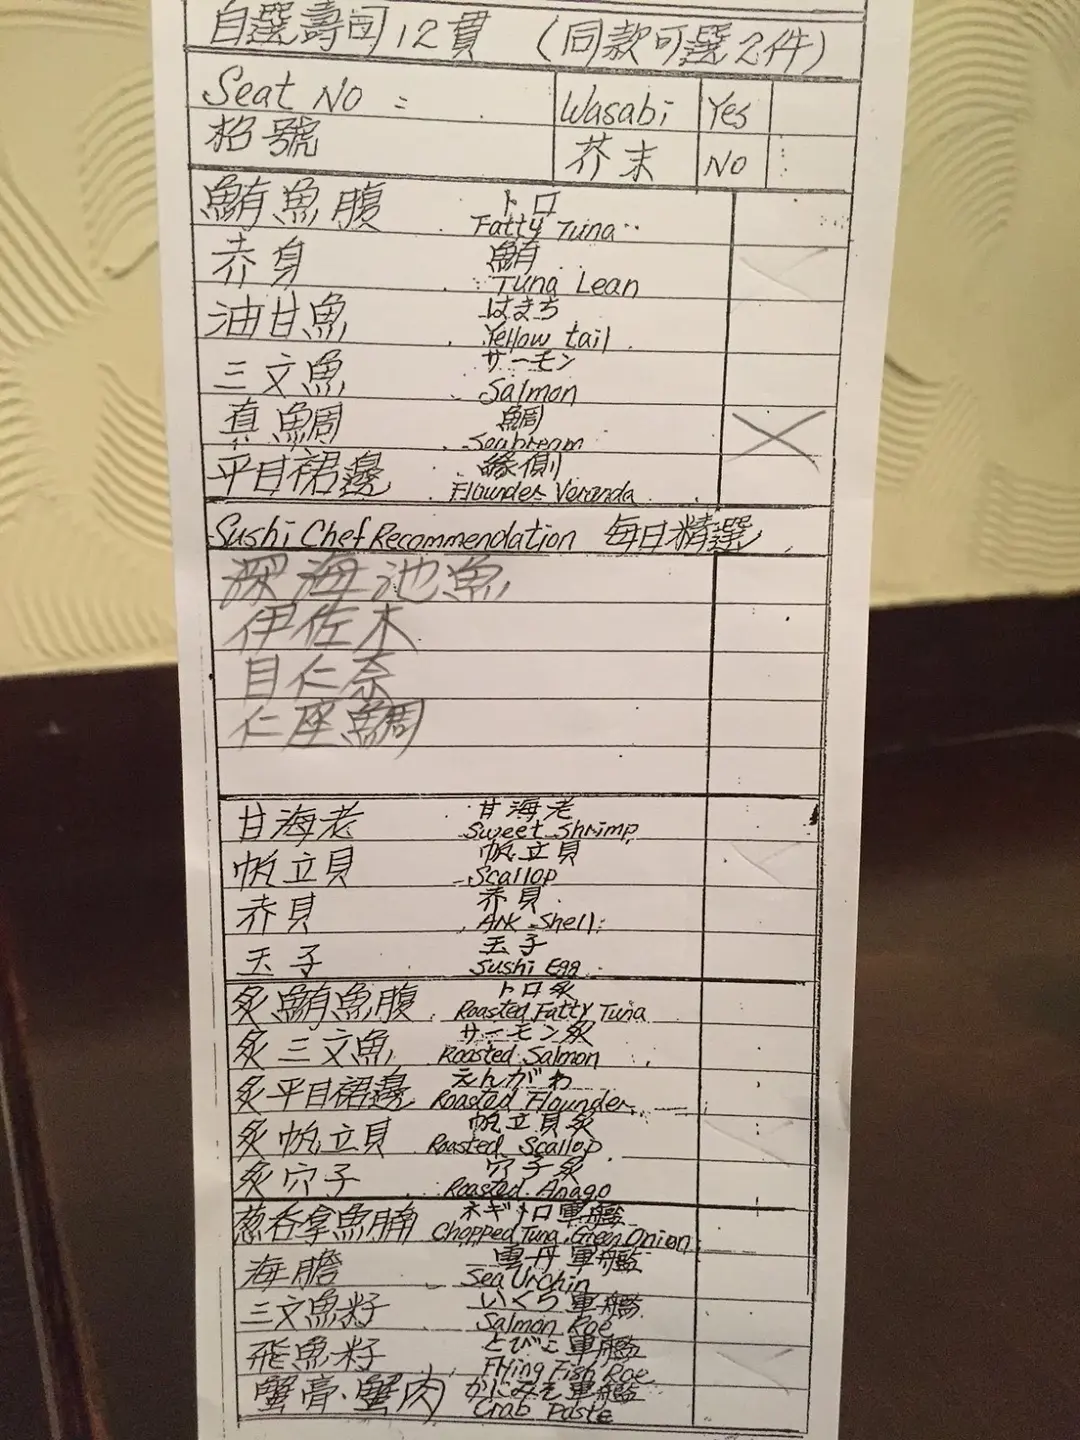 自選壽司12貫 (同款可選2件)
Seat NO : Wasabi Yes
枱號 芥末 NO
鮪魚腹 トロ
Fatty Tuna
赤身 鮪
Tuna Lean
油甘魚 はまち
Yellow tail
三文魚 サーモン
Salmon
真鯛 鯛
Seabream
平目裙邊 緣側
Flounder Veranda
Sushi Chef Recommendation 每日精選
深海池魚
伊佐木
目仁奈
仁座鯛
甘海老 甘海老
Sweet Shrimp
帆立貝 帆立貝
Scallop
赤貝 赤貝
Ark Shell
玉子 玉子
Sushi Egg
炙鮪魚腹 トロ炙
Roasted Fatty Tuna
炙三文魚 サーモン炙
Roasted Salmon
炙平目裙邊 えんがわ
Roasted Flounder
炙帆立貝 帆立貝炙
Roasted Scallop
炙穴子 穴子炙
Roasted Anago
葱吞拿魚腩 ネギトロ軍艦
Chopped Tuna, Green Onion
海膽 雲丹軍艦
Sea Urchin
三文魚籽 いくら軍艦
Salmon Roe
飛魚籽 とびこ軍艦
Flying Fish Roe
蟹膏、蟹肉 かにみそ軍艦
Crab Paste